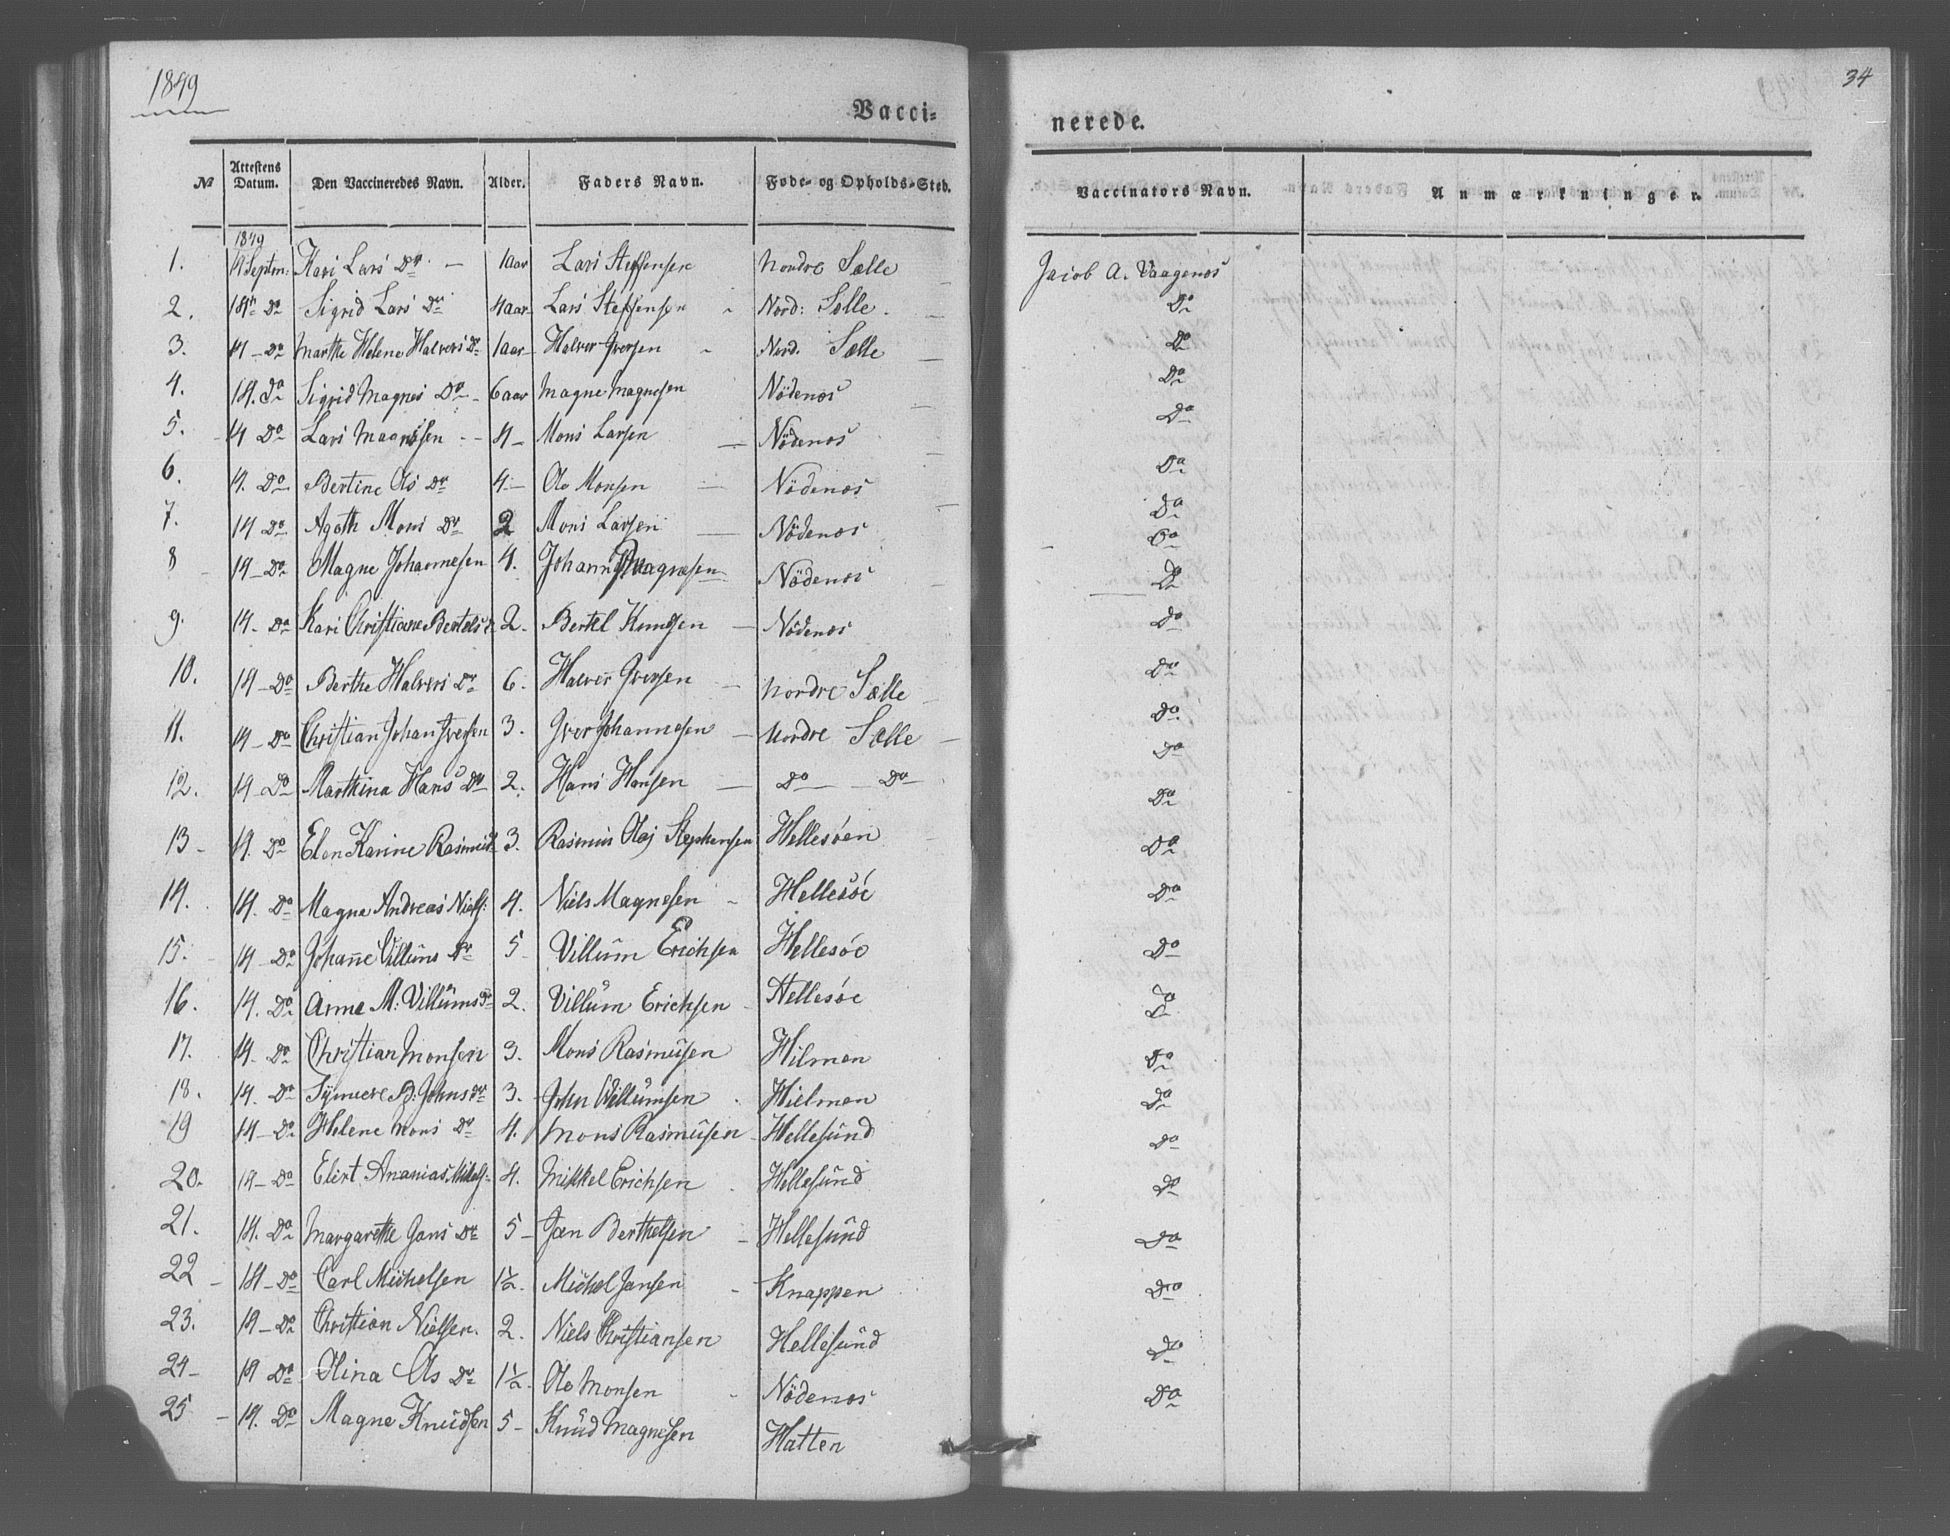 1849
34
Vacci=
nerede.
№ Attestens Datum. Den Vaccineredes Navn. Alder. Faders Navn. Føde- og Opholds-Sted. Vaccinators Navn. Anmærkninger.
1849
1. 14 Septm: Kari Lars Dr — 1 aar Lars Steffensen Nordre Sælle Jacob A. Vaagenæs
2. 14 Do Sigrid Lars Dr 4 aar Lars Steffensen Nord: Sælle Do
3. 14 Do Marthe Helene Halvers Dr 1 aar Halver Iversen Nord. Sælle Do
4. 14. Do Sigrid Magnes Dr 6 aar Magne Magnesen Nödenæs Do
5. 14 Do Lars Magnesen 4 Mons Larsen Nödenæs Do
6. 14. Do Bertine Ols Dr 4 Ole Monsen Nödenæs Do
7. 14 Do Agath Mons Dr 2 Mons Larsen Nödenæs Do
8 14 Do Magne Johannesen 4. Johannes Magnesen Nödenæs Do
9. 14. Do Kari Christiane Bertels d. 2. Bertel Knudsen Nödenæs Do
10. 14 Do Berthe Halvers Dr 6. Halver Iversen Nordre Sælle Do
11. 14 Do Christian Johan Iversen 3. Iver Johannesen Nordre Sælle Do
12. 14 Do Marthina Hans Dr 2. Hans Hansen Do Do Do
13 14. Do Elen Karine Rasmusd 3. Rasmus Olaj Stephensen Hellesöen Do
14. 14. Do Magne Andreas Niels: 4. Niels Magnesen Hellesöe Do
15. 14 Do Johanne Villums Dr 5 Villum Erichsen Hellesöe Do
16. 14. Do Anne M: Villums Dr 2. Villum Erichsen Hellesöe Do
17. 14. Do Christian Monsen 3. Mons Rasmusen Hilmen Do
18. 14. Do B: Johns Dr 3. John Willumsen Hielmen Do
19 14 Do Helene Mons Dr 4. Mons Rasmusen Hellesund Do
20. 14 Do Elert Ananias Mikels: 4. Mikkel Erichsen Hellesund Do
21. 14. Do Margarethe Jans Dr 5 Jan Berthelsen Hellesund Do
22 14 Do Carl Michelsen 1½. Michel Jansen Knappen Do
23. 14 Do Christian Nielsen. 2. Niels Christiansen Hellesund Do
24 14 Do Olina Ols Dr 1½. Ole Monsen Nödenæs Do
25 14. Do Magne Knudsen 5 Knud Magnesen Hatten Do